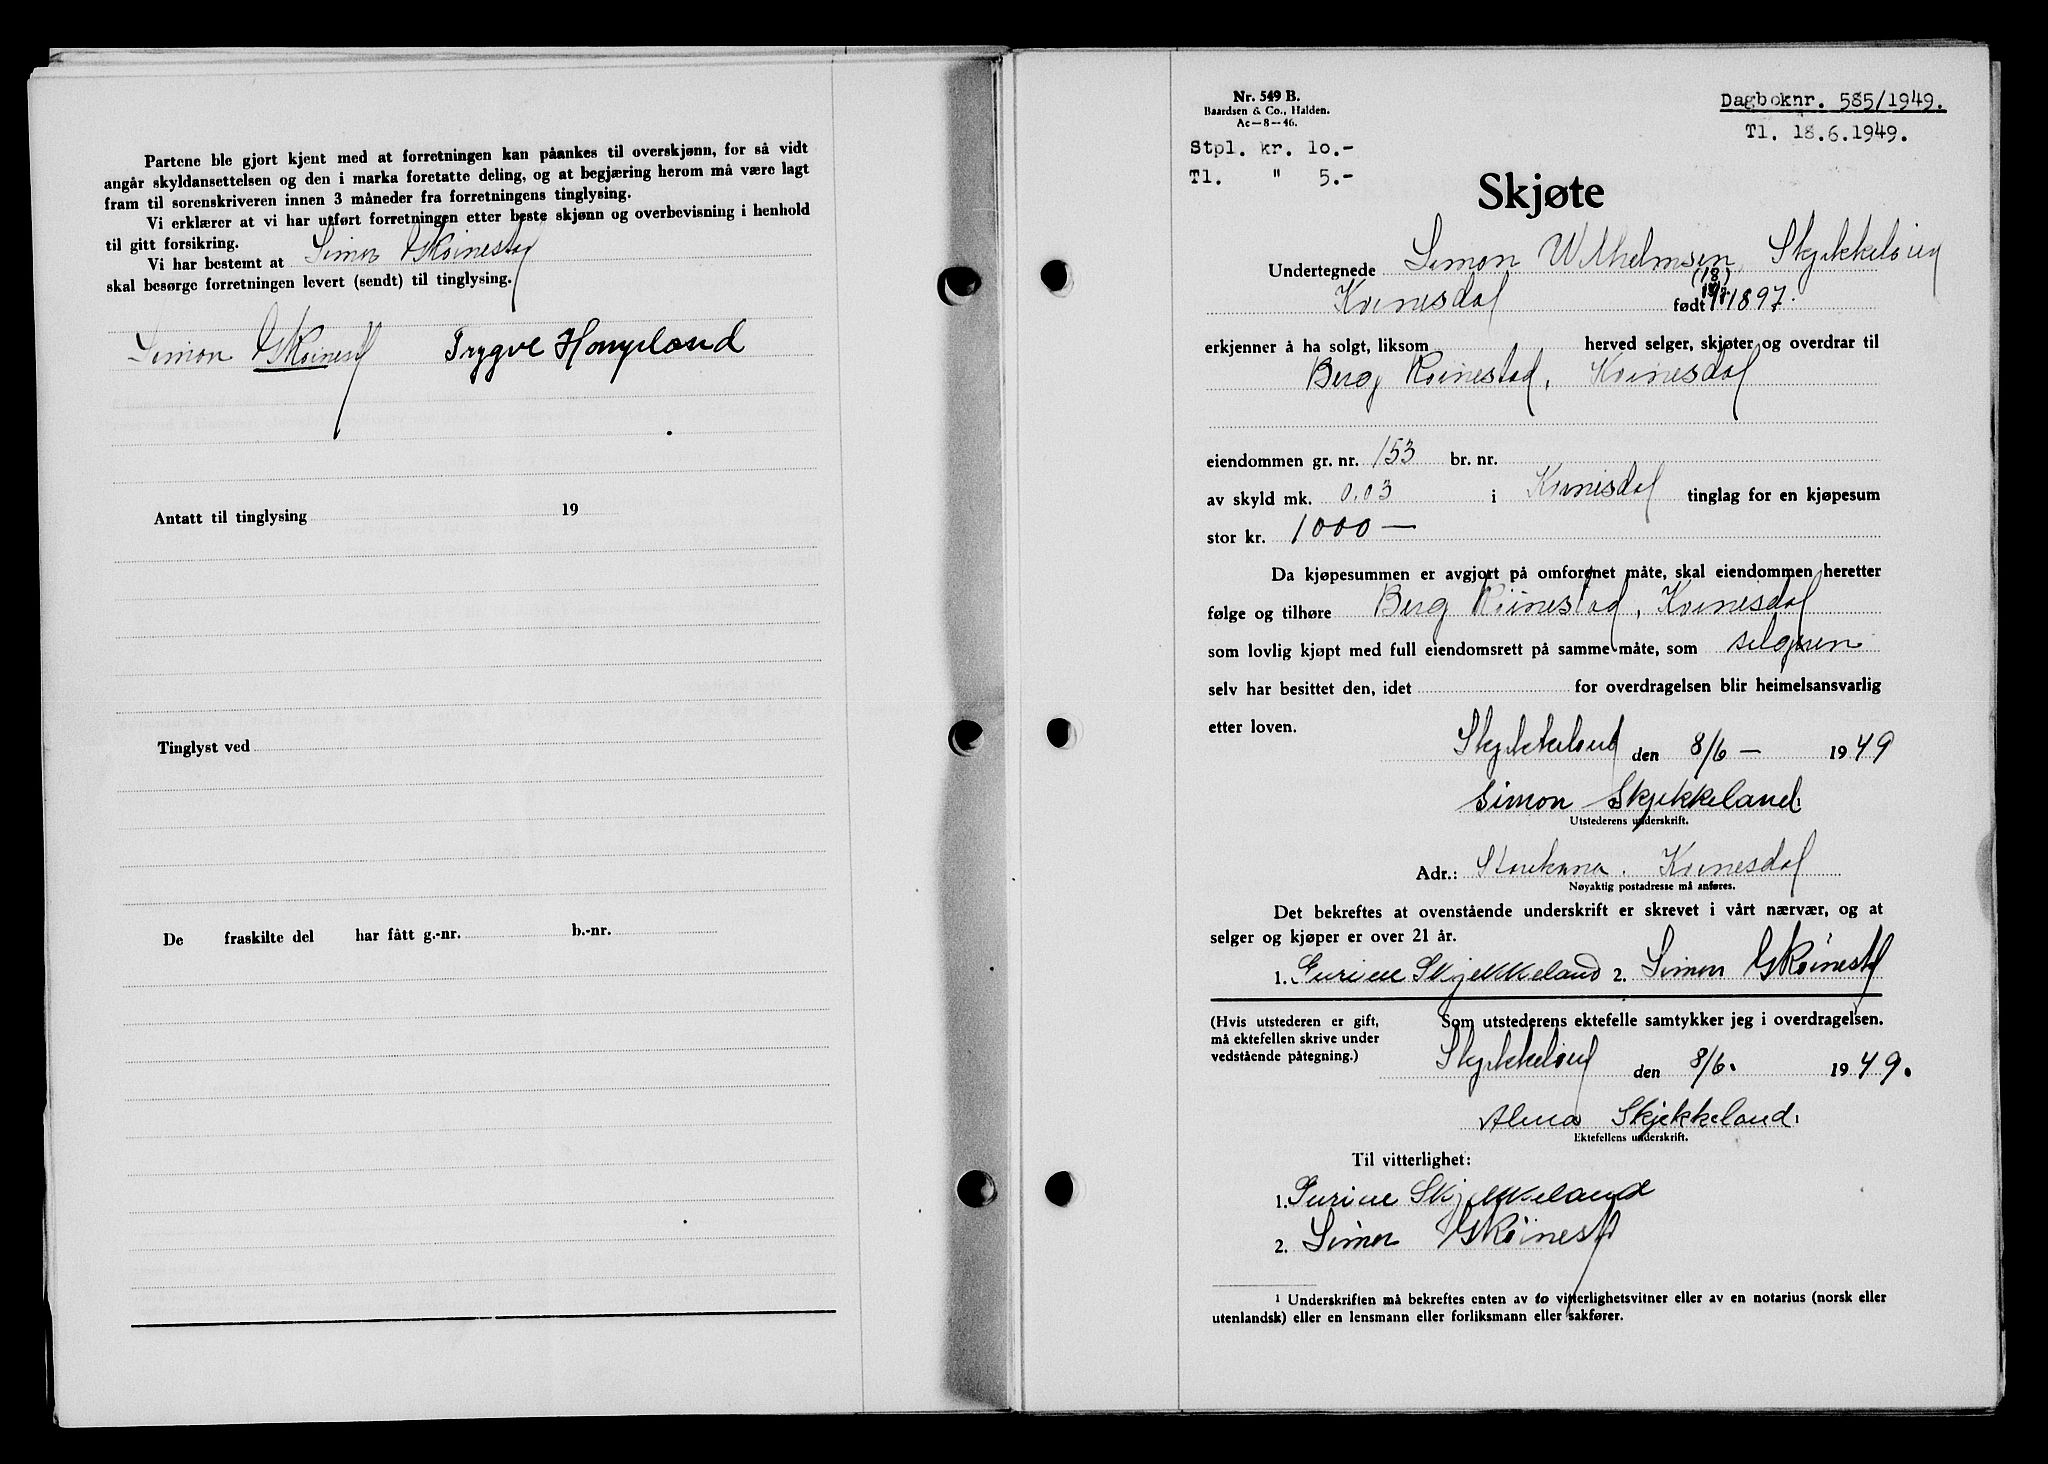 Partene ble gjort kjent med at forretningen kan påankes til overskjønn, for så vidt
angår skyldansettelsen og den i marka foretatte deling, og at begjæring herom må være lagt
fram til sorenskriveren innen 3 måneder fra forretningens tinglysing.
Vi erklærer at vi har utført forretningen etter beste skjønn og overbevisning i henhold
til gitt forsikring.
Vi har bestemt at Simon G Røinestad
skal besørge forretningen levert (sendt) til tinglysing.
Simon G Røinestad Trygve Homyeland
Antatt til tinglysing 19
Tinglyst ved
De fraskilte del har fått g.-nr. b.-nr.
Nr. 549 B.
Baardsen & Co., Halden.
Ac—8—46.
Dagboknr. 585/1949.
Tl. 18.6.1949.
Stpl. kr. 10.-
Tl. " 5.-
Skjøte
Undertegnede Simon Wilhelmsen Skjekkeland
Kvinesdal født 1897.
(18)
erkjenner å ha solgt, liksom herved selger, skjøter og overdrar til
Berg Røinestad, Kvinesdal
eiendommen gr. nr. 153 br. nr.
av skyld mk. 0.03 i Kvinesdal tinglag for en kjøpesum
stor kr. 1000 —
Da kjøpesummen er avgjort på omforenet måte, skal eiendommen heretter
følge og tilhøre Berg Røinestad, Kvinesdal
som lovlig kjøpt med full eiendomsrett på samme måte, som selgeren
selv har besittet den, idet for overdragelsen blir heimelsansvarlig
etter loven.
Skjekkeland den 8/6 — 1949
Simon Skjekkeland
Utstederens underskrift.
Adr.: Storekvina. Kvinesdal
Nøyaktig postadresse må anføres.
Det bekreftes at ovenstående underskrift er skrevet i vårt nærvær, og at
selger og kjøper er over 21 år.
1. Gurine Skjekkeland 2. Simon G Røinestad
(Hvis utstederen er gift,
må ektefellen skrive under
vedstående påtegning.)
Som utstederens ektefelle samtykker jeg i overdragelsen.
Skjekkeland den 8/6. 1949.
Alma Skjekkeland
Ektefellens underskrift.
Til vitterlighet:
1. Gurine Skjekkeland
2. Simon G Røinestad
1 Underskriften må bekreftes enten av to vitterlighetsvitner eller av en notarius (norsk eller
utenlandsk) eller en lensmann eller forliksmann eller sakfører.